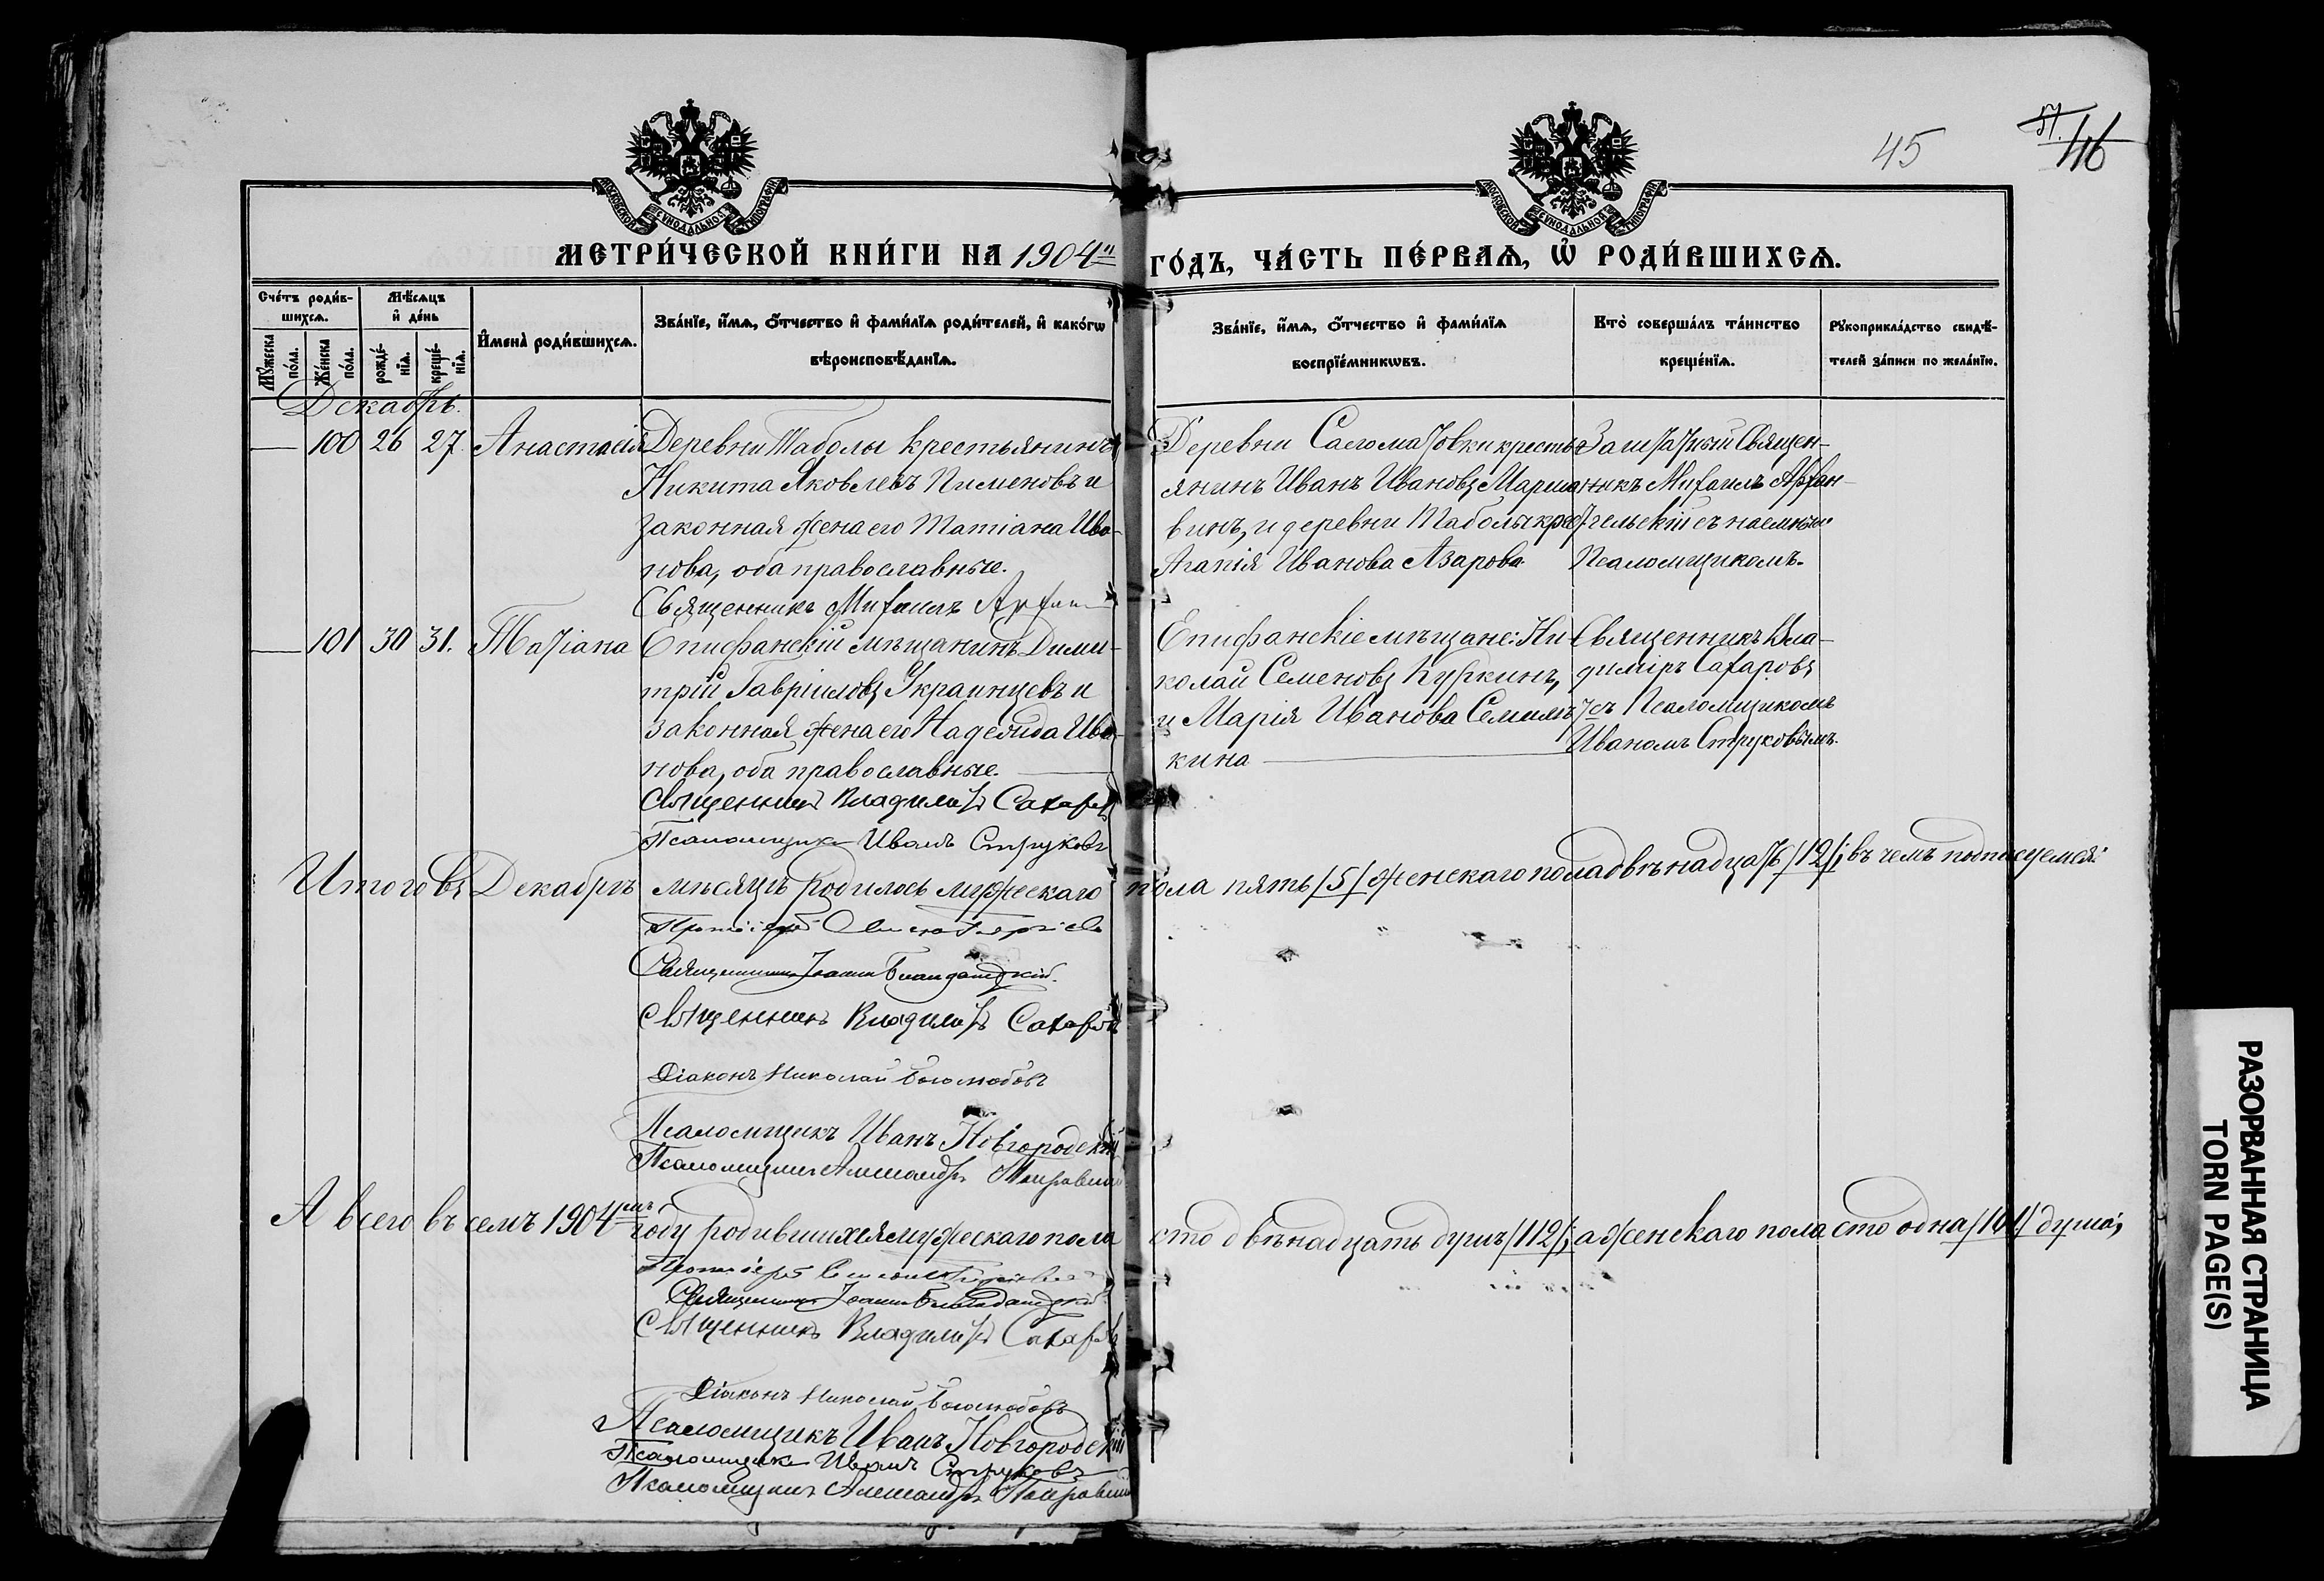 45
51.
46
МОСКОВСКОЙ СѴНОДАЛЬНОЙ ТИПОГРАФІИ
МОСКОВСКОЙ СѴНОДАЛЬНОЙ ТИПОГРАФІИ
МЕТРИ́ЧЕСКОЙ КНИ́ГИ НА 1904й
ГО́ДЪ, ЧА́СТЬ ПЕ́РВАѦ, Ѿ РОДИ́ВШИХСѦ.
Сче́тъ роди́в-
шихсѧ.
Мꙋ́жеска по́ла.
Же́нска по́ла.
Мѣ́сѧцъ
и҆ де́нь
рожде́-
нїѧ.
креще́-
нїѧ.
И҆мена̀ роди́вшихсѧ.
Зва́нїе, и҆́мѧ, ѻ҆́тчество и҆ фами́лїѧ роди́телей, и҆ како́гѡ
вѣроисповѣ́данїѧ.
Зва́нїе, и҆́мѧ, ѻ҆́тчество и҆ фами́лїѧ
воспрїе́мникѡвъ.
Кто̀ соверша́лъ та́инство
креще́нїѧ.
Рꙋкоприкла́дство свидѣ́-
телей за́писи по жела́нїю.
Декабрь.
— 100 26 27 Анастасія Деревни Таболы крестьянинъ
Никита Яковлевъ Пименовъ и
законная жена его Татіана Ива-
нова, оба православные.
Священникъ Михаилъ
Деревни кресть-
янинъ Иванъ Ивановъ
винъ, и деревни Таболы кре
Агапія Иванова Азарова
Заштатный Священ-
никъ Михаилъ Архан-
гельскій съ наемным
Псаломщикомъ.
— 101 30 31. Татіана Епифанскій мѣщанинъ Дими-
трій Гавріиловъ Украинцевъ и
законная жена его Надежда Ива-
нова, оба православные.
Священникъ Владиміръ Сахаровъ
Псаломщикъ Иванъ Струковъ
Епифанскіе мѣщане: Ни-
колай Семеновъ Куркинъ,
и Марія Иванова Семиль-
кина
Священникъ Вла-
диміръ Сахаровъ
съ Псаломщикомъ
Иваномъ Струковымъ.
Итого въ Декабрѣ мѣсяцѣ родилось мужескаго пола пять /5/ женскаго пола двѣнадцать /12/; въ чемъ подписуемся:
Протоіерей
Священникъ Іоаннъ
Священникъ Владиміръ Сахаровъ
Діаконъ Николай Боголюбовъ
Псаломщикъ Иванъ Новгородскій
Псаломщикъ Александръ
А всего въ семъ 1904мъ году родившихся мужескаго пола сто двѣнадцать душъ /112/; а женскаго пола сто одна /101/ душа;
Протоіерей
Священникъ Іоаннъ
Священникъ Владиміръ Сахаровъ
Діаконъ Николай Боголюбовъ
Псаломщикъ Иванъ Новгородскій
Псаломщикъ Иванъ Струковъ
Псаломщикъ Александръ
РАЗОРВАННАЯ СТРАНИЦА
TORN PAGE(S)